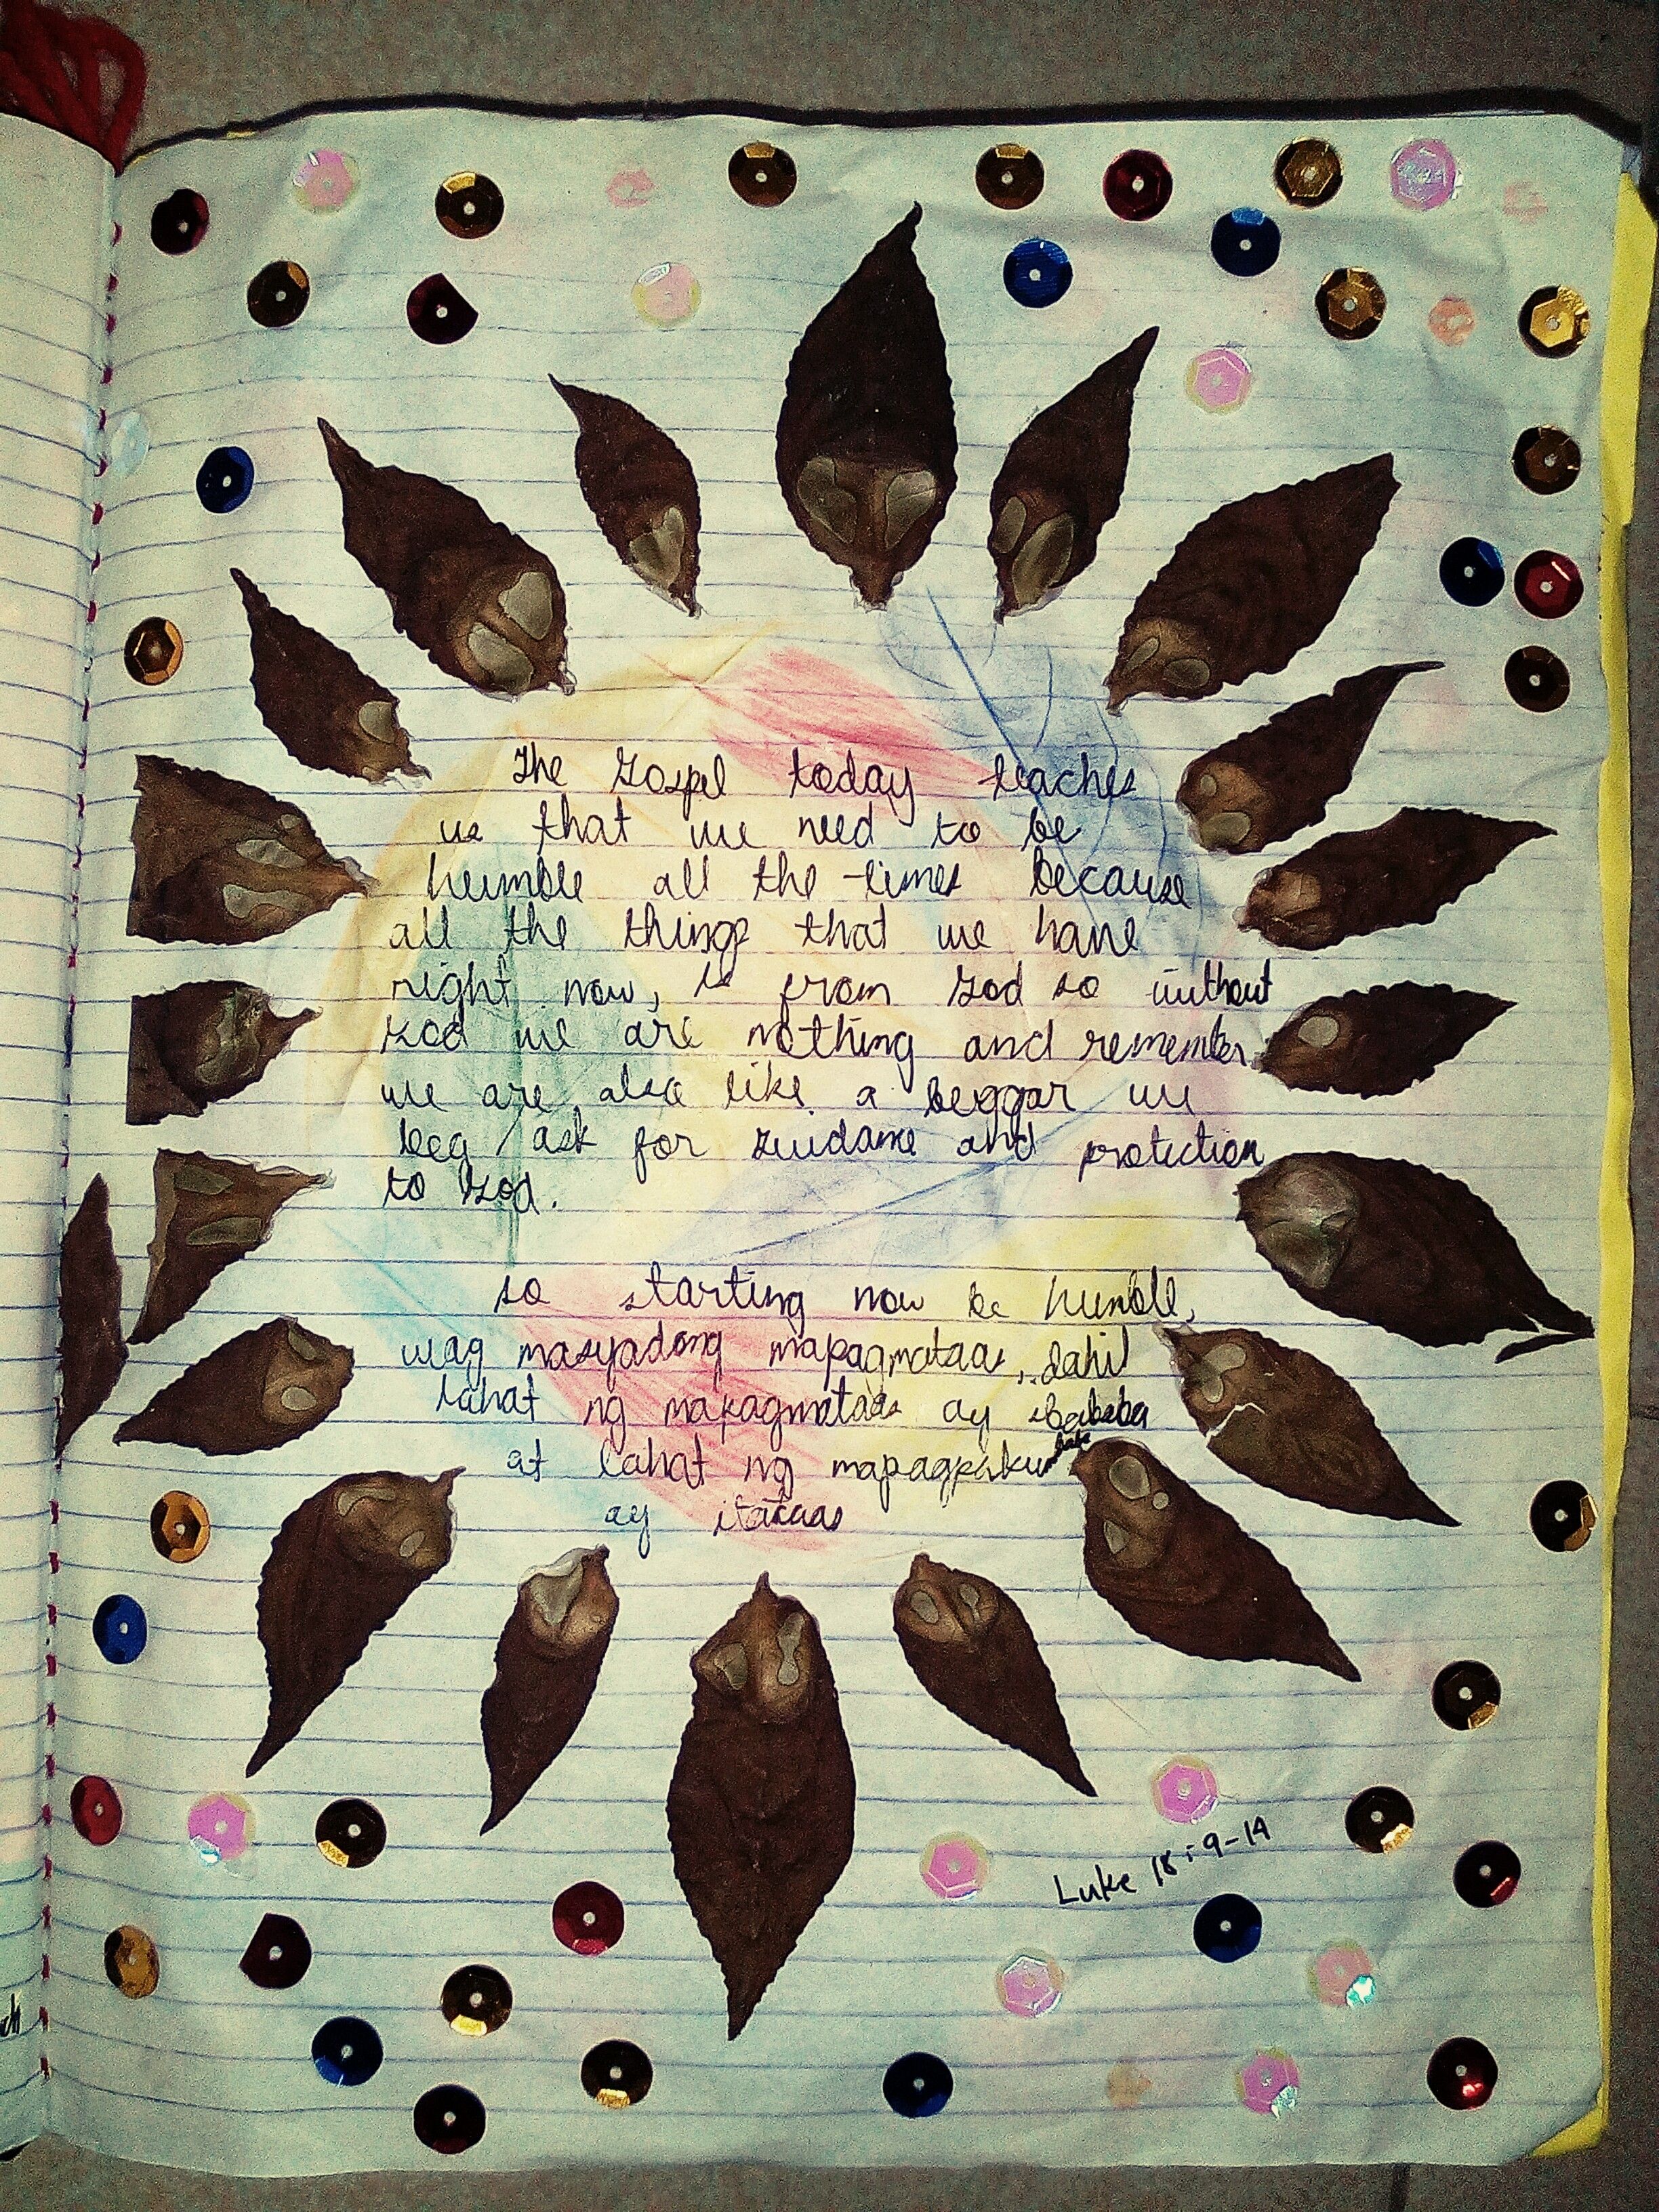 The Gospel today teaches
us that we need to be
humble all the times because
all the things that we have
right now, is from God so without
God we are nothing and remember
we are also like a beggar we
beg / ask for guidance and protection
to God.
so starting now be humble,
wag masyadong mapagmataas, dahil
lahat ng mapagmataas ay ibababa
at lahat ng
ay itataas
Luke 18:9-14